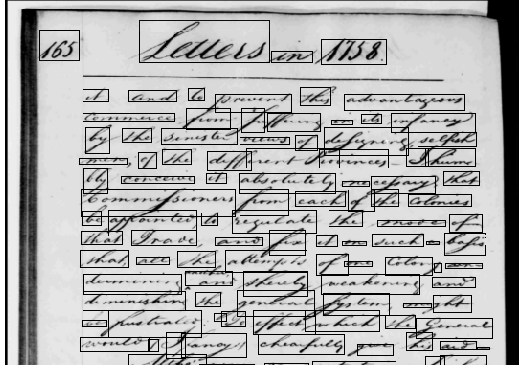 165 Letters in 1758.
it and to prevent this advantageous
commerce from suffering in its infancy
by the sinister views of designing, selfish
men, of the different Provinces - I hum
bly conceive it absolutely necessary that
Commissioners from each of the Colonies
be appointed, to regulate the mode of
that Trade, and fix it on such a basis,
that, all the attempts of one Colony un-
dermining another and thereby weakening and
diminishing the general System, might
be frustrated. To effect which the General
would, I fancy, chearfully give his aid.